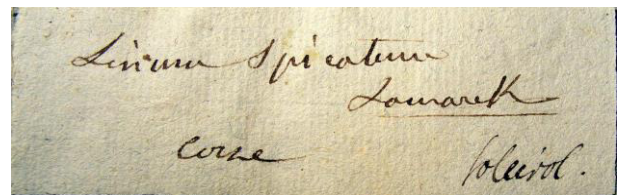 Linum Spicatum
Lamarck
Corse
Soleirol.